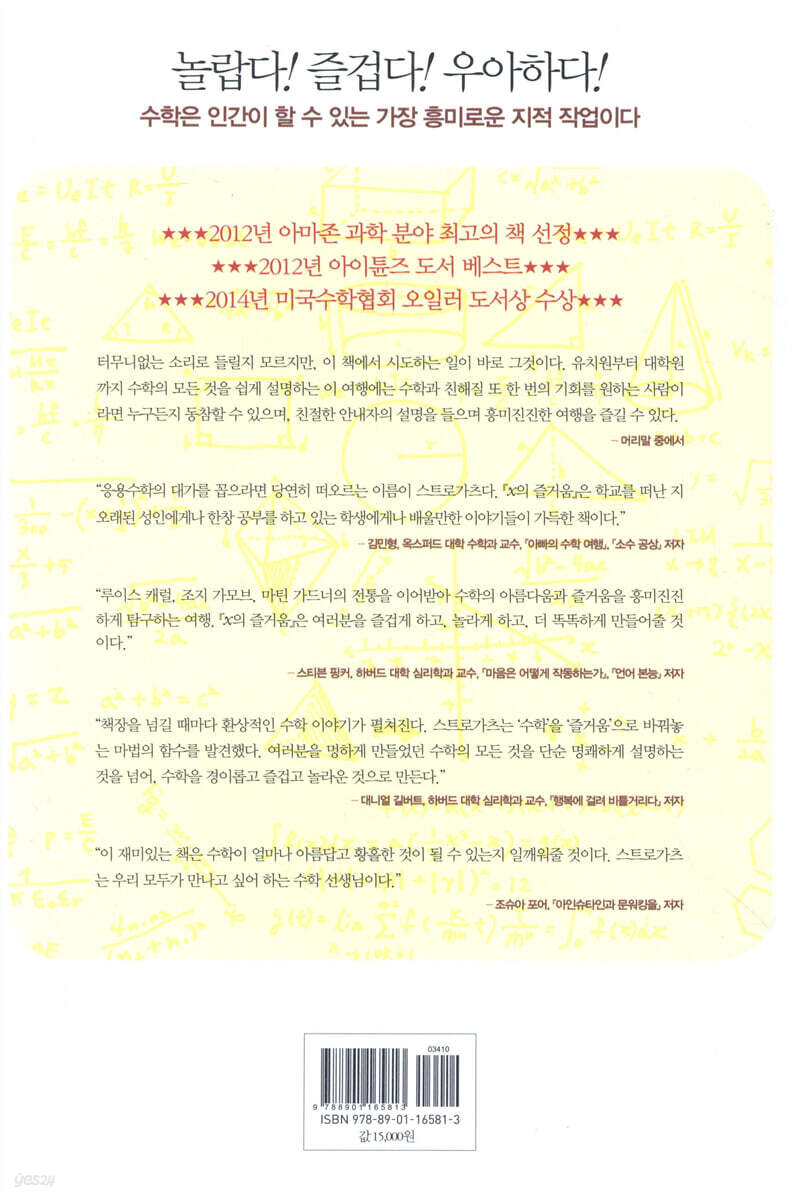 놀랍다! 즐겁다! 우아하다!
수학은 인간이 할 수 있는 가장 흥미로운 지적 작업이다
★★★2012년 아마존 과학 분야 최고의 책 선정★★★
★★★2012년 아이튠즈 도서 베스트★★★
★★★2014년 미국수학협회 오일러 도서상 수상★★★
터무니없는 소리로 들릴지 모르지만, 이 책에서 시도하는 일이 바로 그것이다. 유치원부터 대학원
까지 수학의 모든 것을 쉽게 설명하는 이 여행에는 수학과 친해질 또 한 번의 기회를 원하는 사람이
라면 누구든지 동참할 수 있으며, 친절한 안내자의 설명을 들으며 흥미진진한 여행을 즐길 수 있다.
– 머리말 중에서
“응용수학의 대가를 꼽으라면 당연히 떠오르는 이름이 스트로가츠다. 『x의 즐거움』은 학교를 떠난 지
오래된 성인에게나 한창 공부를 하고 있는 학생에게나 배울만한 이야기들이 가득한 책이다.”
– 김민형, 옥스퍼드 대학 수학과 교수, 『아빠의 수학 여행』, 『소수 공상』 저자
“루이스 캐럴, 조지 가모브, 마틴 가드너의 전통을 이어받아 수학의 아름다움과 즐거움을 흥미진진
하게 탐구하는 여행. 『x의 즐거움』은 여러분을 즐겁게 하고, 놀라게 하고, 더 똑똑하게 만들어줄 것
이다.”
– 스티븐 핑커, 하버드 대학 심리학과 교수, 『마음은 어떻게 작동하는가』, 『언어 본능』 저자
“책장을 넘길 때마다 환상적인 수학 이야기가 펼쳐진다. 스트로가츠는 ‘수학’을 ‘즐거움’으로 바꿔놓
는 마법의 함수를 발견했다. 여러분을 멍하게 만들었던 수학의 모든 것을 단순 명쾌하게 설명하는
것을 넘어, 수학을 경이롭고 즐겁고 놀라운 것으로 만든다.”
– 대니얼 길버트, 하버드 대학 심리학과 교수, 『행복에 걸려 비틀거리다』 저자
“이 재미있는 책은 수학이 얼마나 아름답고 황홀한 것이 될 수 있는지 일깨워줄 것이다. 스트로가츠
는 우리 모두가 만나고 싶어 하는 수학 선생님이다.”
– 조슈아 포어, 『아인슈타인과 문워킹을』 저자
03410
9 788901 165813
ISBN 978-89-01-16581-3
값 15,000원
yes24